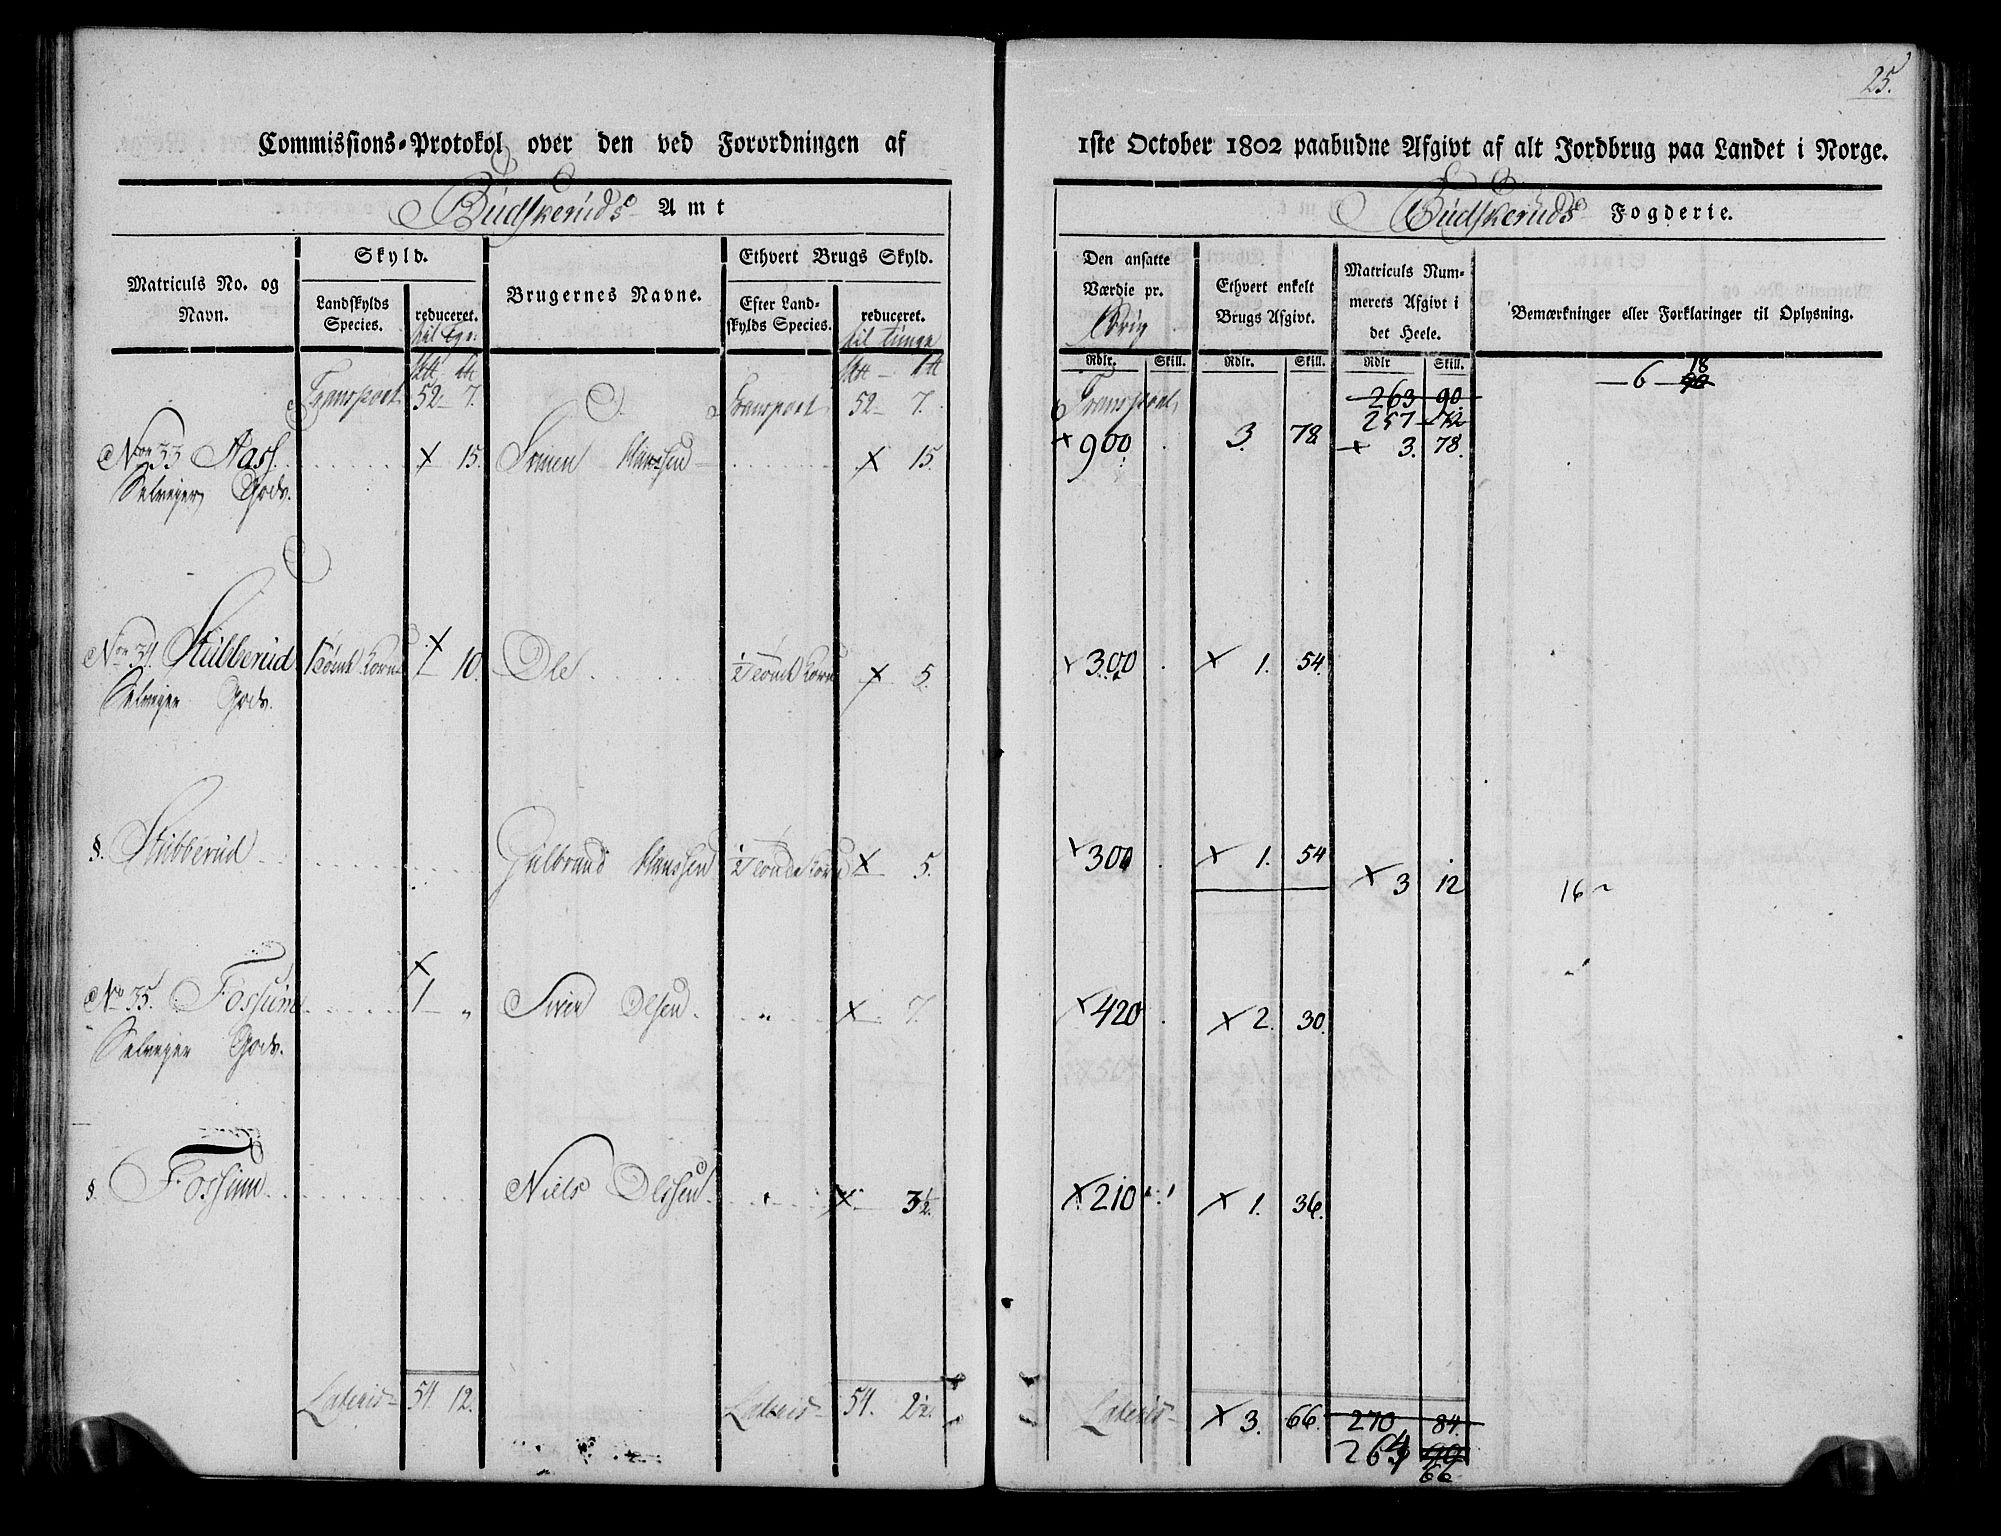 25.
Commissions-Protokol over den ved Forordningen af 1ste October 1802 paabudne Afgivt af alt Jordbrug paa Landet i Norge.
Budskeruds Amt
Budskeruds Fogderie.
Matriculs No. og Navn.
Skyld.
Landskylds Species.
reduceret.
Brugernes Navne.
Ethvert Brugs Skyld.
Efter Landskylds Species.
reduceret.
til tunge
Den ansatte Værdie pr.
Ethvert enkelt Brugs Afgivt.
Matriculs Nummerets Afgivt i det Heele.
Bemærkninger eller Forklaringer til Oplysning.
Rdlr. Skill. Rdlr. Skill. Rdlr Skill.
Transport 52 7. Transport 52 7. Transport 263 90 — 6 — 18
257 72
Nro 33 Aass. × 15. Hanssen × 15. × 900 3 78 × 3. 78.
Selveyer Gods.
Nro 34. Stubberud 1 Tønde Korn × 1 10. Ole ½ Tønde Korn × 5. × 300 × 1. 54.
Selveyer Gods.
§. Stubberud Gulbrand Hanssen ½ Tønde Korn × 5. × 300 × 1. 54
× 3 12 16
No 35. Fossum × 1 „ Siver Olsen „ × 7. × 420 × 2. 30.
Selveyer Gods.
§. Fossum Niels Olssen × 3½. × 210 × 1. 36.
Lateris 54. 12. Lateris 54. 2½. Lateris × 3. 66. 270 84.
264
66